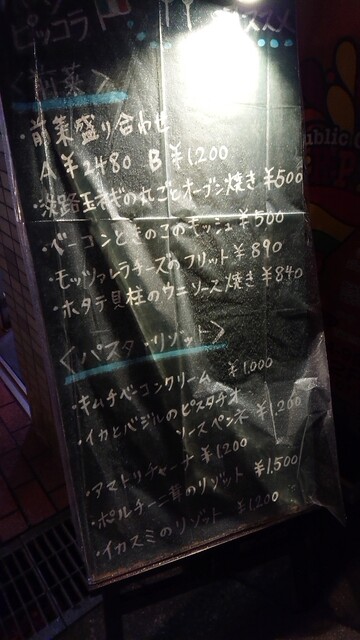 ピッコラ
オススメ
<前菜>
・前菜盛り合わせ
A ¥2480 B ¥1,200
・淡路玉ネギの丸ごとオーブン焼き ¥500
・ベーコンときのこのキッシュ ¥500
・モッツァレラチーズのフリット ¥890
・ホタテ貝柱のウニソース焼き ¥840
<パスタ・リゾット>
・キムチベーコンクリーム ¥1,000
・イカとバジルのピスタチオ
ソースペンネ ¥1,200
・アマトリチャーナ ¥1200
・ポルチーニ茸のリゾット ¥1,500
・イカスミのリゾット ¥1200